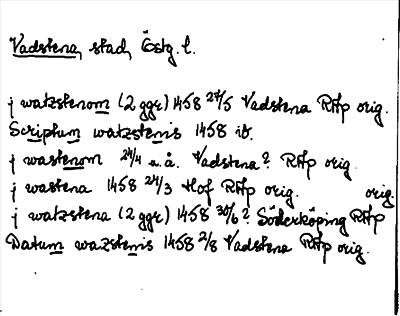 Vadstena, stad, Östg. l.
j watzstenom (2 ggr) 1458 27/5 Vadstena RAp orig.
Scriptum watzstenis 1458 ib.
j wastenom 24/4 u.å. Vadstena? RAp orig.
j wastena 1458 24/3 Hof RAp orig.
j watzstena (2 ggr) 1458 30/6? Söderköping RAp orig
Datum wazstenis 1458 2/8 Vadstena RAp orig.